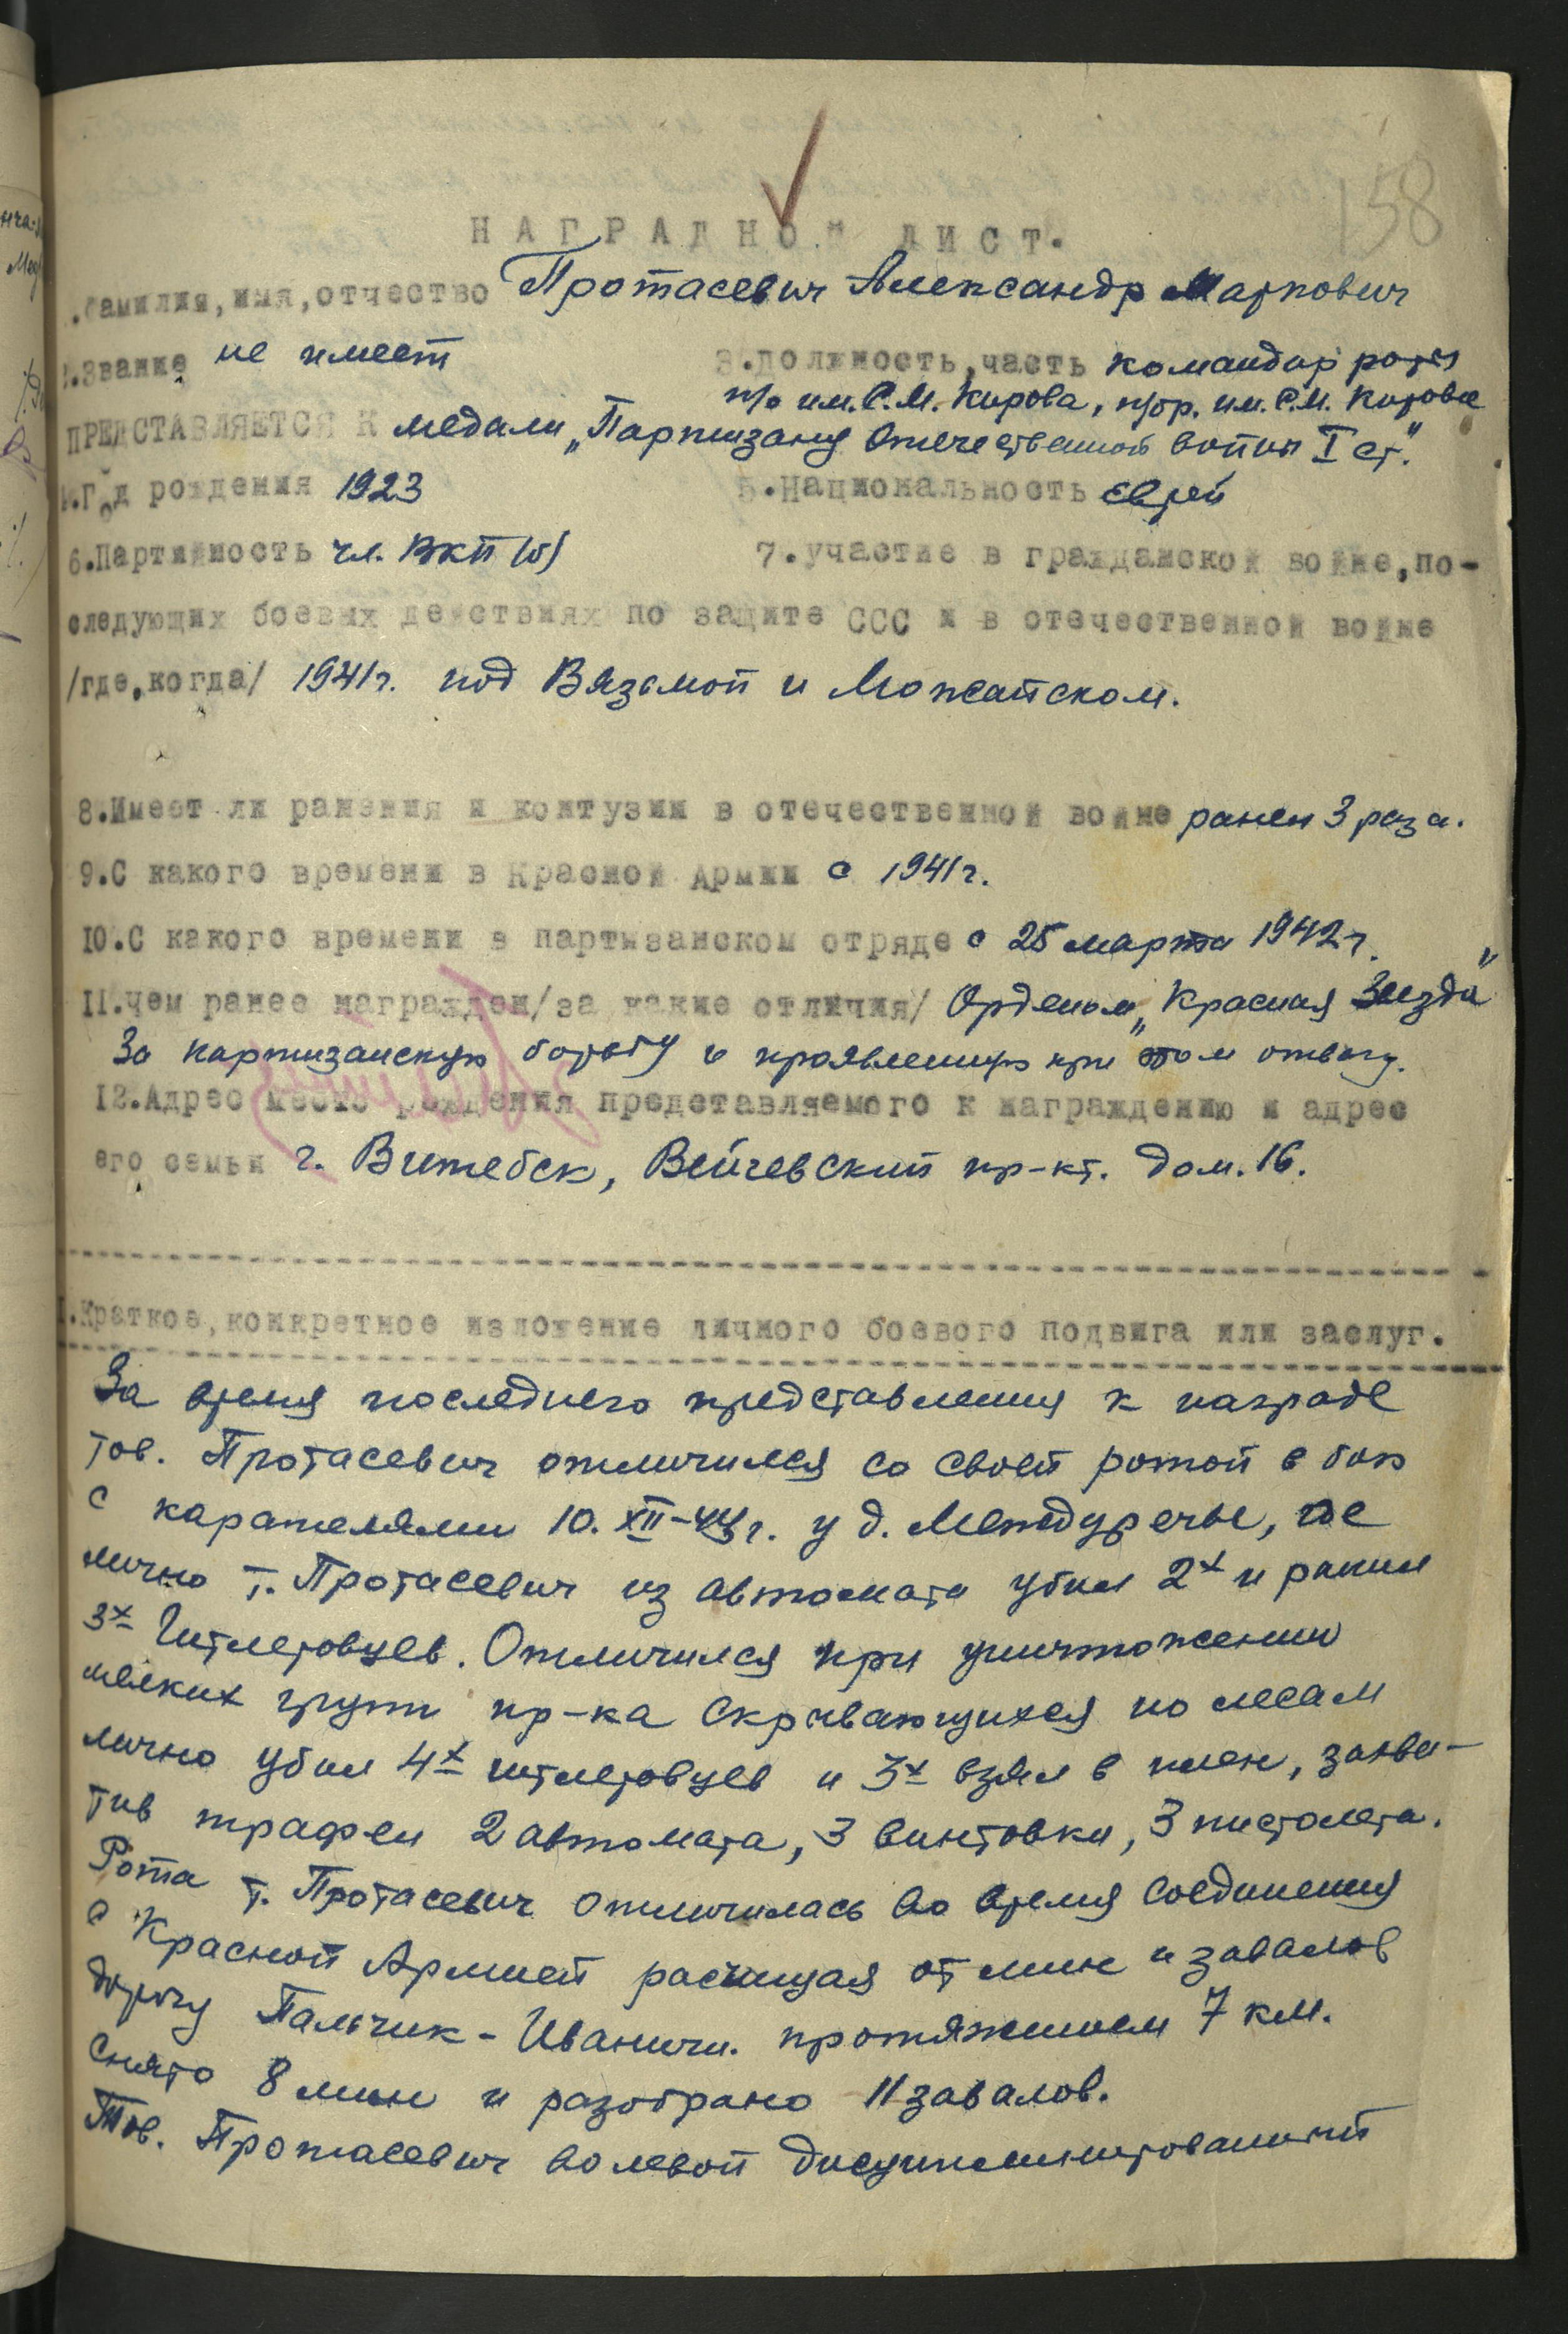 158
НАГРАДНОЙ ЛИСТ.
.Фамилия, имя, отчество Протасевич Александр Маркович
2.Звание не имеет 3.Должность, часть командир роты
п/о им. С.М. Кирова, п/бр. им. С.М. Кирова
ПРЕДСТАВЛЯЕТСЯ К медали „Партизану Отечественной войны I ст."
4.Год рождения 1923 5.Национальность Еврей
6.Партийность чл. ВКП(б) 7.участие в гражданской войне, по-
следующих боевых действиях по защите ССС и в отечественной войне
/где, когда/ 1941г. под Вязьмой и Можайском.
8.Имеет ли ранения и контузии в отечественной войне ранен 3 раза.
9.С какого времени в Красной Армии с 1941г.
10.С какого времени в партизанском отряде с 25 марта 1942г.
11.чем ранее награжден/за какие отличия/ Орденом „Красная Звезда"
За партизанскую борьбу и проявленную при этом отвагу.
12.Адрес место рождения представляемого к награждению и адрес
его семьи г. Витебск, пр-кт. дом. 16.
1.Краткое, конкретное изложение личного боевого подвига или заслуг.
За время последнего представления к награде
тов. Протасевич отличился со своей ротой в бою
с карателями 10.XII-43г. у д. Междуречье, где
лично т. Протасевич из автомата убил 2х и ранил
3х Гитлеровцев. Отличился при уничтожении
мелких групп пр-ка скрывающихся по лесам
лично убил 4х гитлеровцев и 3х взял в плен, захва-
тив трофеи 2 автомата, 3 винтовки, 3 пистолета.
Рота т. Протасевич отличилась во время соединения
с Красной Армией расчищая от мин и завалов
дорогу Пальчик-Иваничи. протяжением 7 км.
снято 8 мин и разобрано 11 завалов.
Тов. Протасевич волевой дисциплинированный